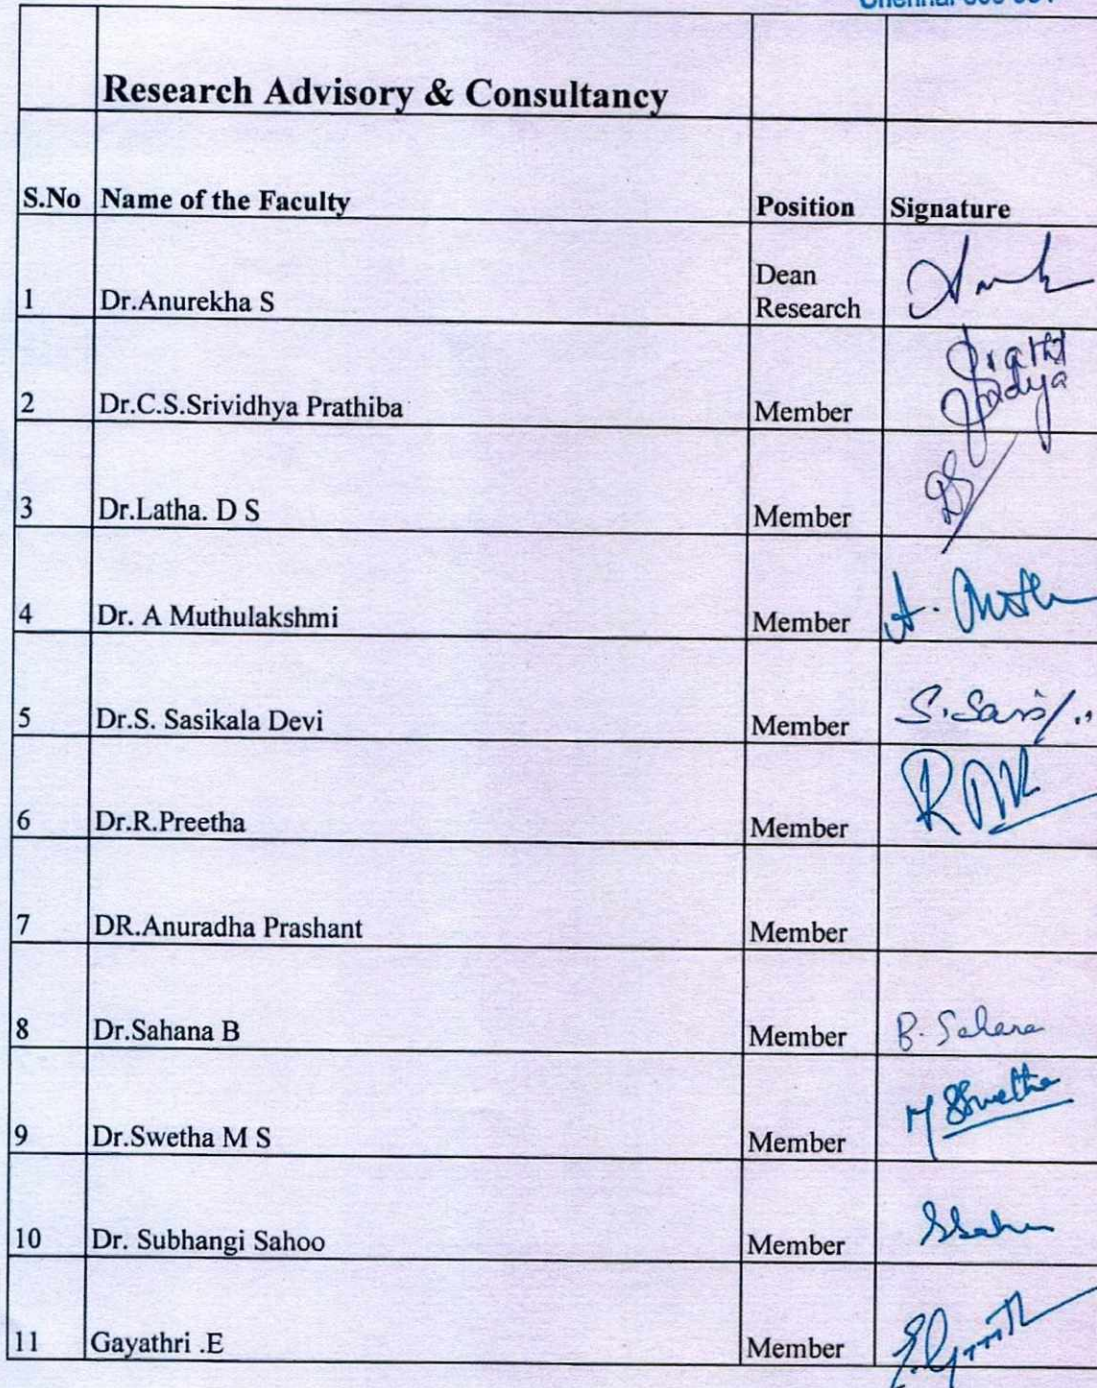 Research Advisory & Consultancy
S.No Name of the Faculty Position Signature
1 Dr.Anurekha S Dean Research
2 Dr.C.S.Srividhya Prathiba Member
3 Dr.Latha. D S Member
4 Dr. A Muthulakshmi Member
5 Dr.S. Sasikala Devi Member
6 Dr.R.Preetha Member
7 DR.Anuradha Prashant Member
8 Dr.Sahana B Member B. Sahana
9 Dr.Swetha M S Member
10 Dr. Subhangi Sahoo Member
11 Gayathri .E Member